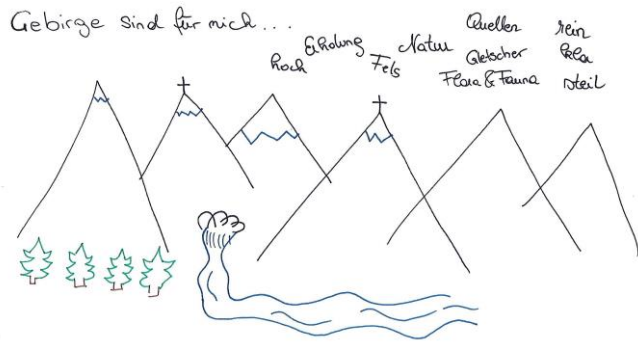 Gebirge sind für mich...
hoch
Erholung
Fels
Natur
Quellen
Gletscher
Flora & Fauna
rein
kla
steil